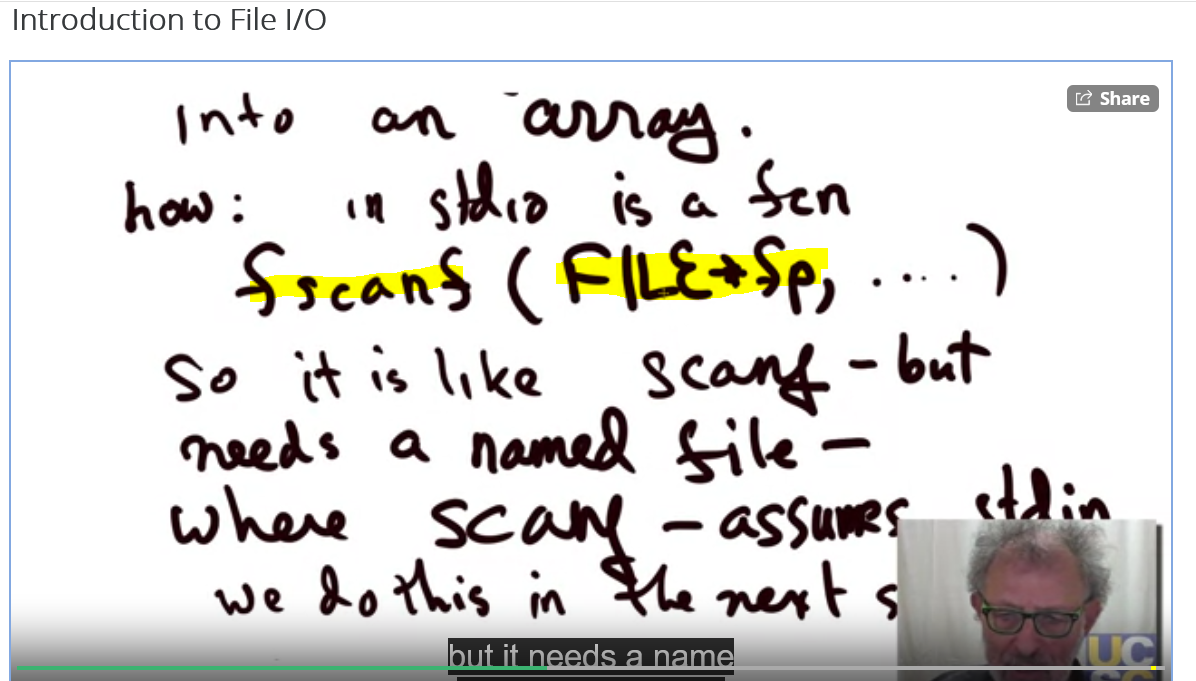 Introduction to File I/O
Share
into an array.
how: in stdio is a fcn
fscanf (FILE*fp, ....)
So it is like scanf - but
needs a named file -
where scanf - assumes stdin
we do this in the next s
but it needs a name
UC